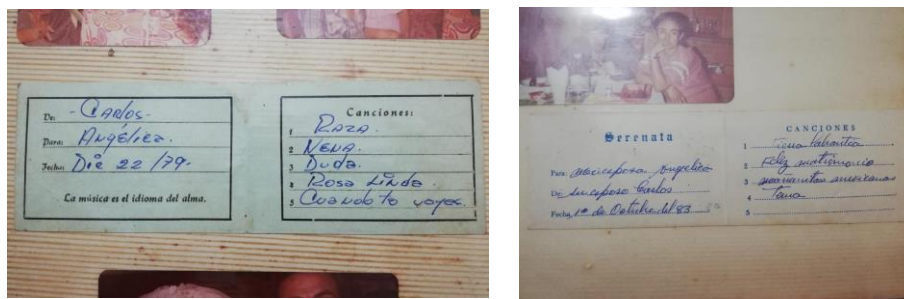 De: - Carlos -
Para: Angélica.
Fecha: Dic 22/79.
La música es el idioma del alma.
Canciones:
1 Raza.
2 Nena.
3 Duda.
4 Rosa Linda
5 Cuando te vayas.
Serenata
Para: mi esposa Angélica
De: su esposo Carlos
Fecha, 1º de Octubre del 83
CANCIONES
1
2 Feliz matrimonio
3 mañanitas mexicanas
4
5